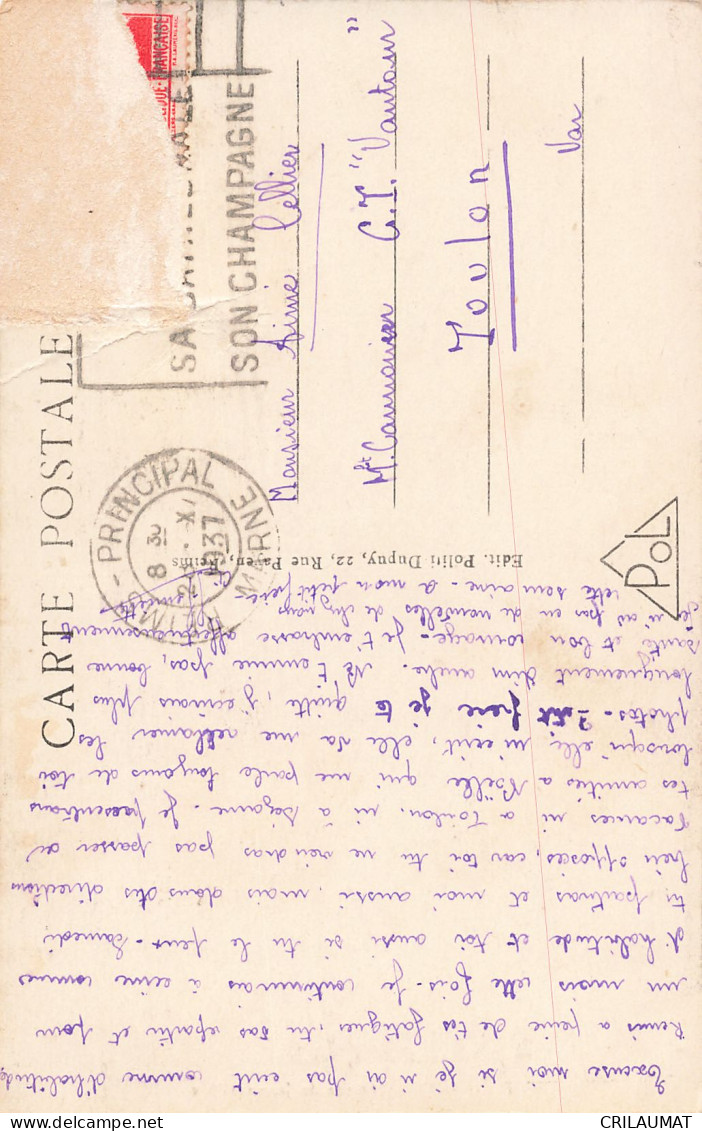 CARTE POSTALE
SON CHAMPAGNE
PRINCIPAL
MARNE
8 30
1937
Monsieur Aimé Cellier
Mt Canonnier C.T. "Vautour"
Toulon
Var
Edit. Politi Dupuy, 22, Rue Payen, Reims
POL
Excuse moi si je n'ai pas écrit comme d'habitude
Remis a peine de tes fatigues, tu vas repartir et pour
un mois cette fois. Je continuerais à écrire comme
d'habitude et toi aussi si tu le peux. Samedi
tu partiras et moi aussi, mais dans des directions
bien opposées, car toi tu ne viendras pas passer de
vacances ni a Toulon, ni à Sézanne. Je présenterais
tes amitiés a Noëlle qui me parle toujours de toi
lorsqu'elle m'écrit, elle va me réclamer les
photos. Petit frère je te quitte, j'écrirais plus
longuement dimanche. Ne t'ennuie pas, bonne
santé et bon courage. Je t'embrasse affectueusement
Je n'ai pas eu de nouvelles de
cette semaine. a mon petit frère